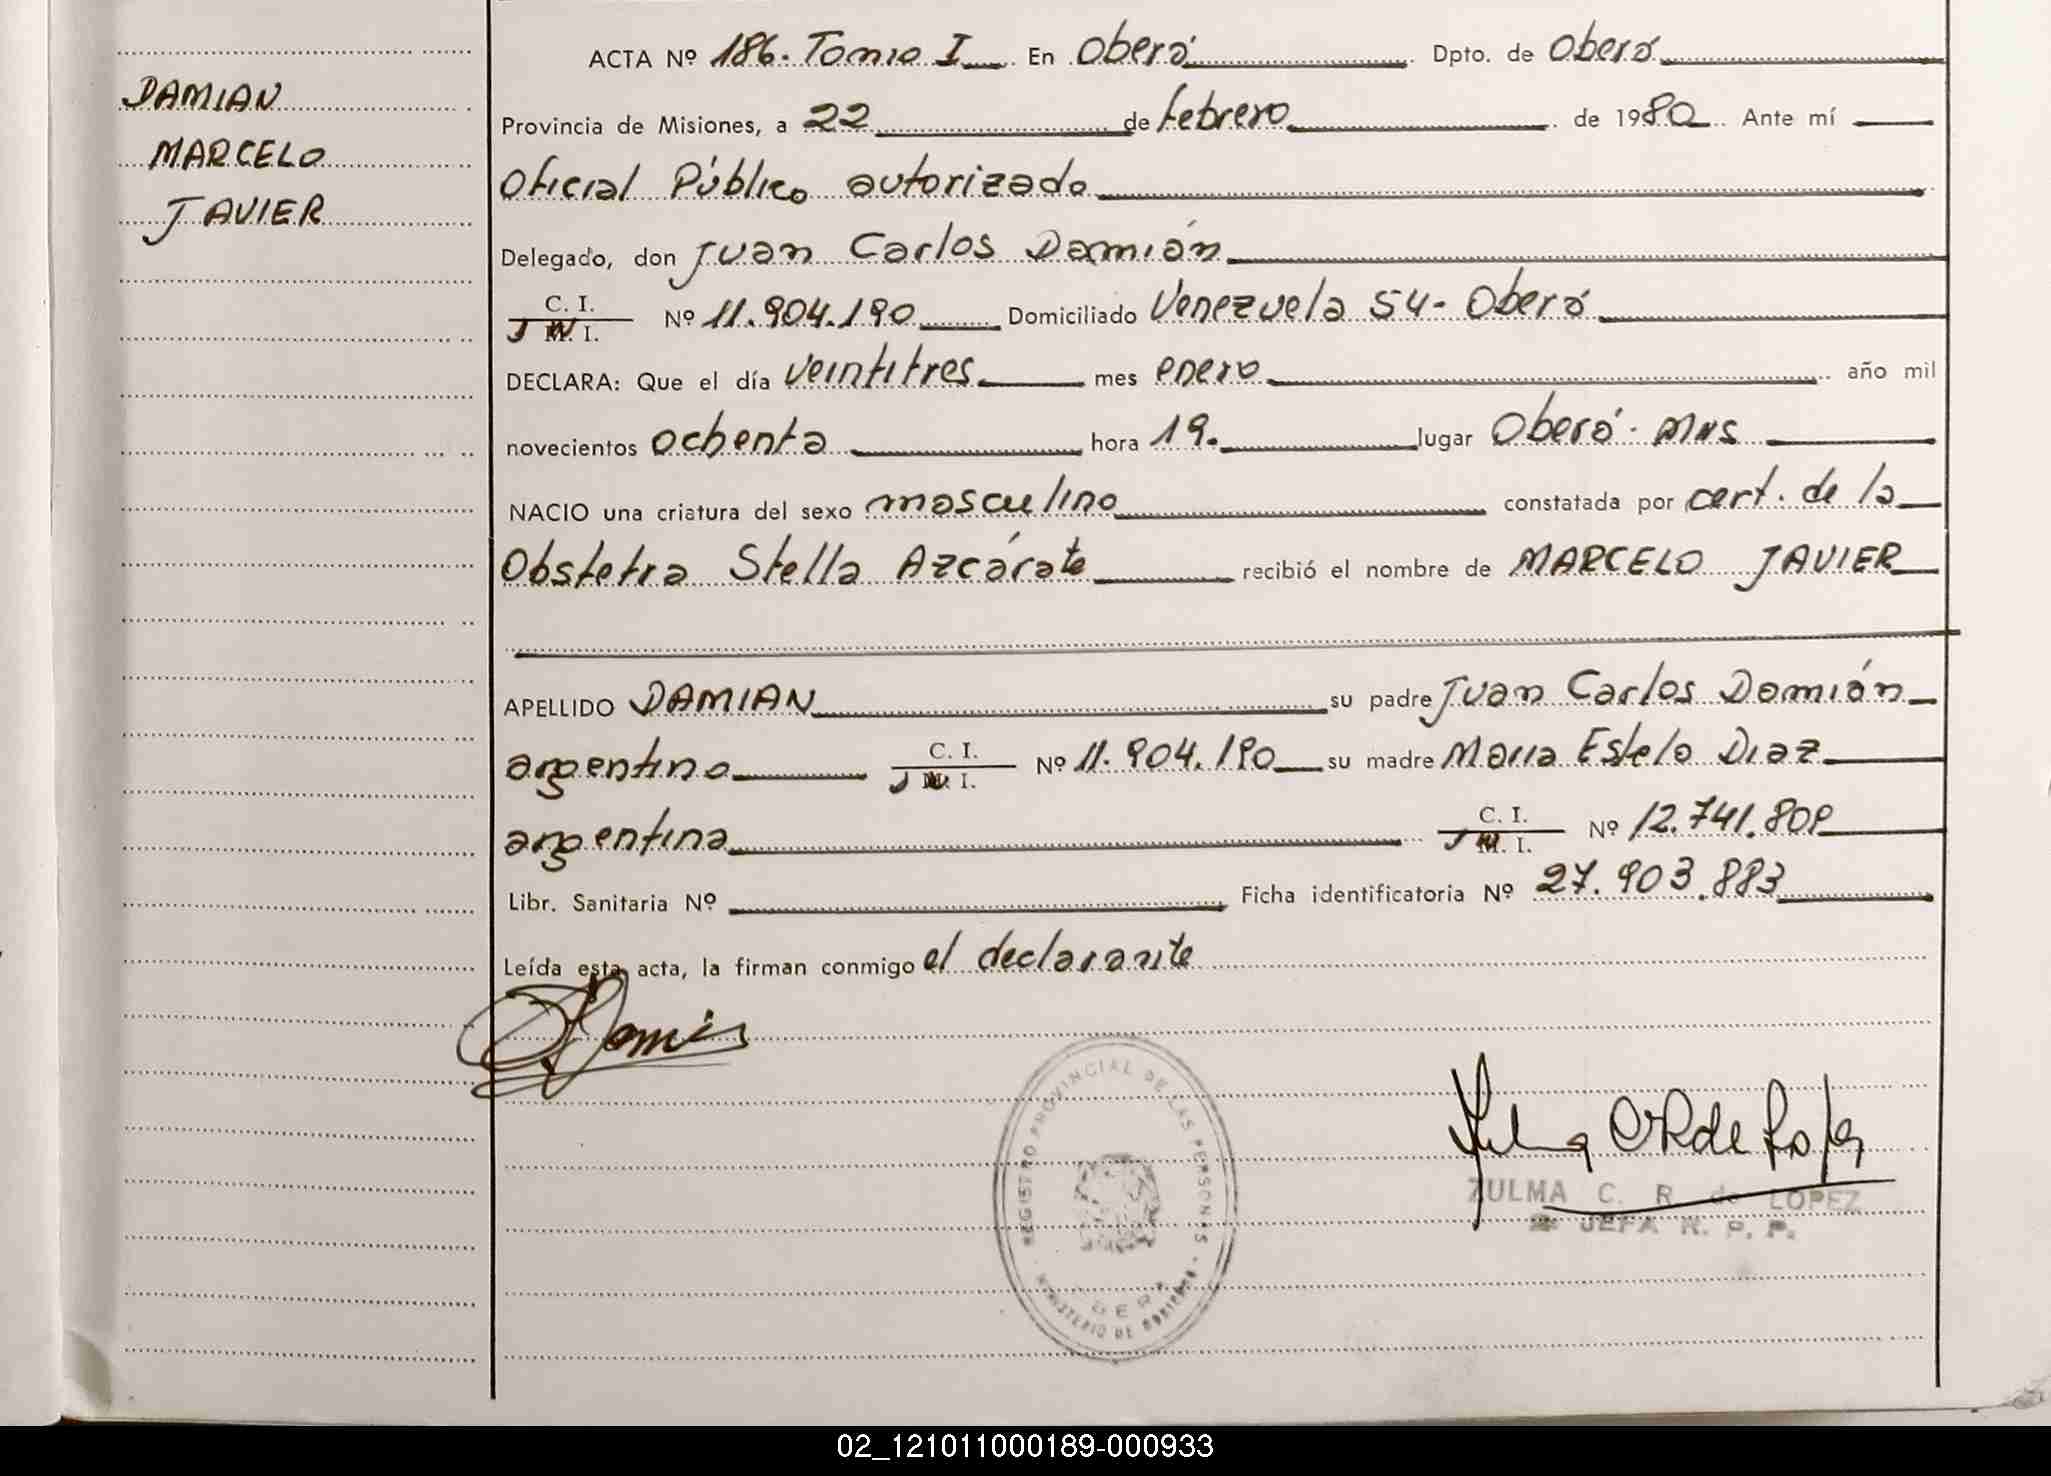 DAMIAN
MARCELO
JAVIER
ACTA Nº 186. Tomo I En Oberá Dpto. de Oberá
Provincia de Misiones, a 22 de febrero de 1980 Ante mí
Oficial Público autorizado
Delegado, don Juan Carlos Damián
C. I.
M. I.
Nº 11.904.190 Domiciliado Venezuela 54 - Oberá
DECLARA: Que el día veintitres mes enero año mil
novecientos ochenta hora 19. lugar Oberá - Mns
NACIO una criatura del sexo masculino constatada por cert. de la
Obstetra Stella Azcárate recibió el nombre de MARCELO JAVIER
APELLIDO DAMIAN su padre Juan Carlos Damián
argentino C. I. Nº 11.904.190 su madre Maria Estela Diaz
argentina C. I. Nº 12.741.809
M. I.
Libr. Sanitaria Nº Ficha identificatoria Nº 27.903.883
Leída esta acta, la firman conmigo el declarante
REGISTRO PROVINCIAL DE LAS PERSONAS
MINISTERIO DE GOBIERNO
OBERA
ZULMA C. R. de LOPEZ
JEFA R. P. P.
02_121011000189-000933